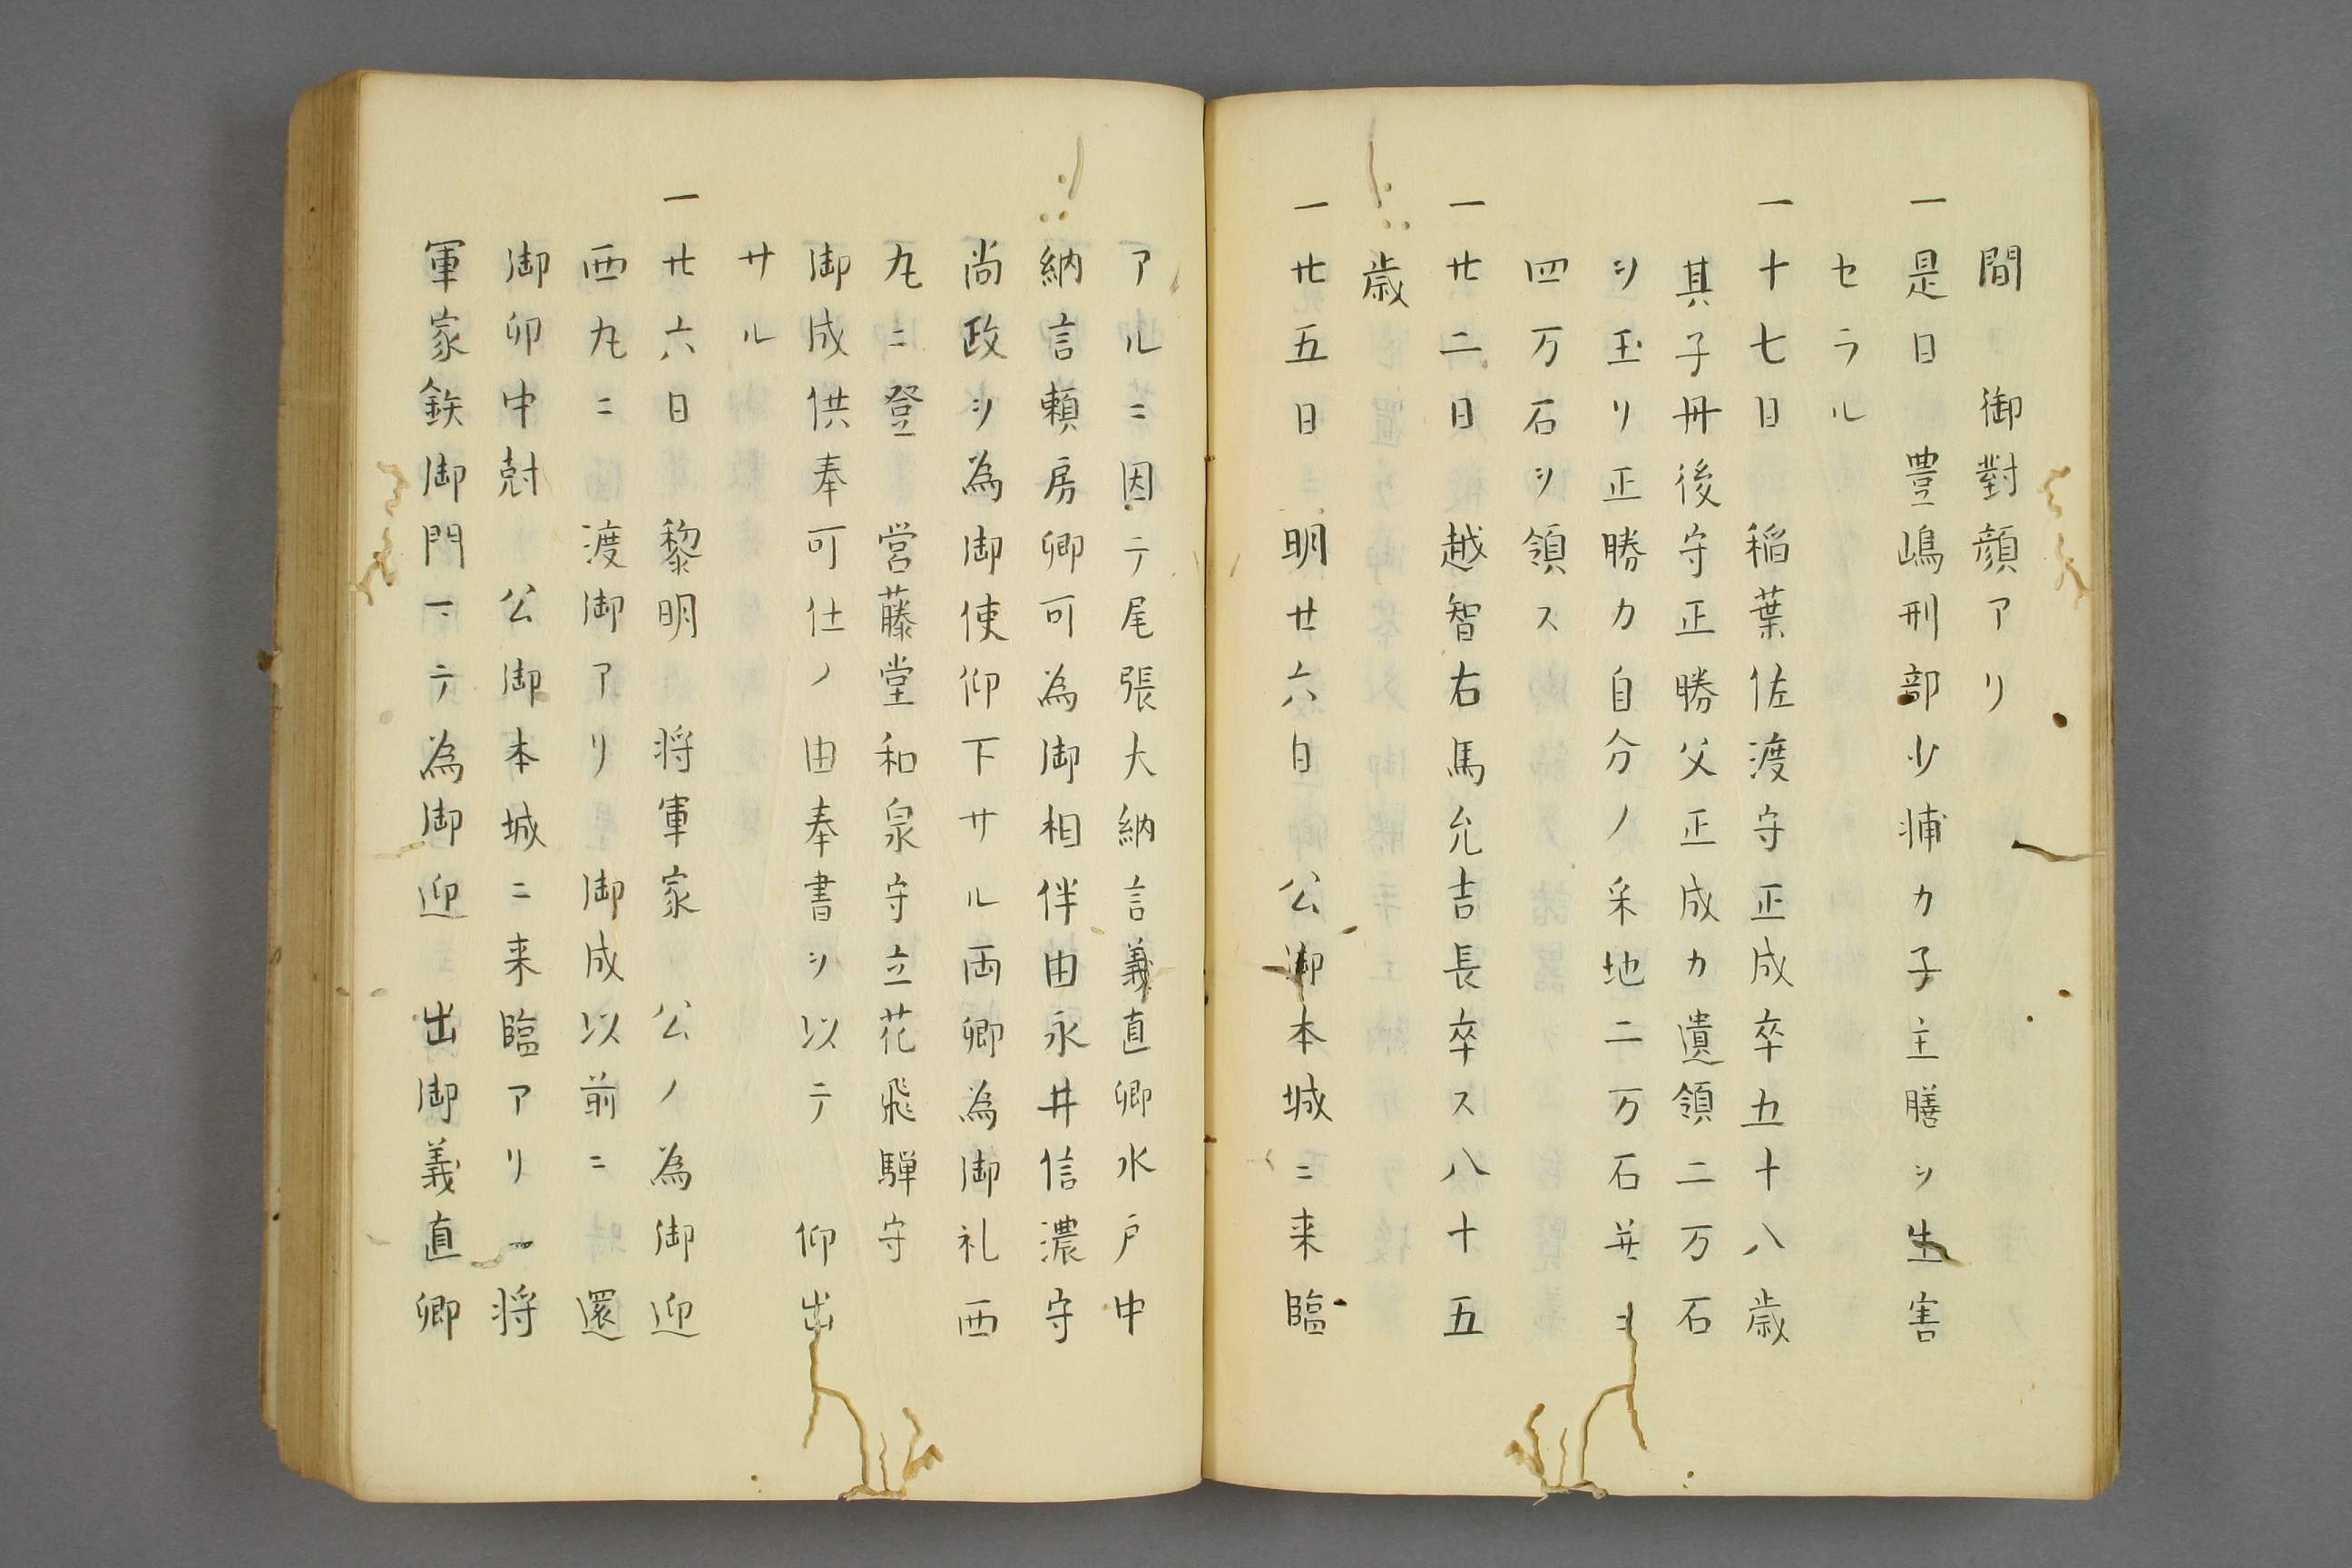 間　御對顔アリ
一是日　豊嶋刑部少浦カ子主膳ヲ生害
セラル
一十七日　稲葉佐渡守正成卒五十八歳
其子丹後守正勝父正成カ遺領二万石
ヲ玉リ正勝カ自分ノ采地二万石并ニ
四万石ヲ領ス
一廿二日　越智右馬允吉長卒ス八十五
歳
一廿五日　明廿六日　公御本城ニ来臨
アルニ因テ尾張大納言義直卿水戸中
納言頼房卿可為御相伴由永井信濃守
尚政ヲ為御使仰下サル両卿為御礼西
丸ニ登　営藤堂和泉守立花飛騨守
御成供奉可仕ノ由奉書ヲ以テ　仰出
サル
一廿六日　黎明　将軍家　公ノ為御迎
西丸ニ　渡御アリ　御成以前ニ　還
御卯中尅　公御本城ニ来臨アリ　将
軍家鉄御門ニテ為御迎　出御義直卿